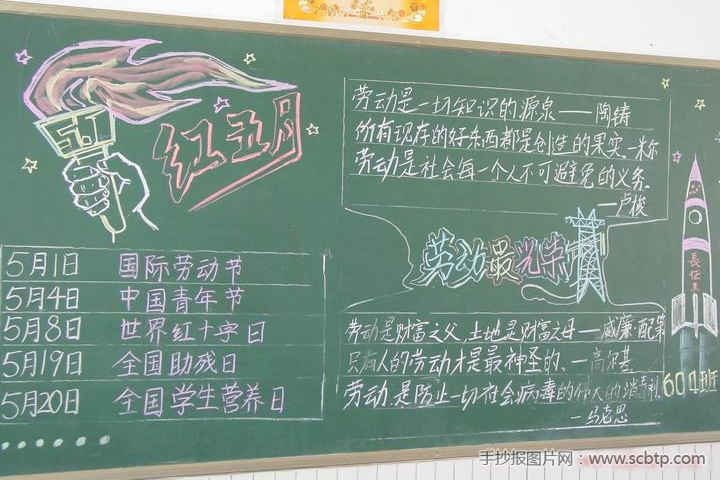 5.1
红五月
5月1日 国际劳动节
5月4日 中国青年节
5月8日 世界红十字日
5月19日 全国助残日
5月20日 全国学生营养日
劳动是一切知识的源泉——陶铸
所有现存的好东西都是创造的果实。—米尔
劳动是社会每一个人不可避免的义务。
—卢梭
劳动最光荣
劳动是财富之父，土地是财富之母——威廉·配第
只有人的劳动才是最神圣的。—高尔基
劳动是防止一切社会病毒的伟人的消毒剂
—马克思
長征
手抄报图片网：www.scbtp.com